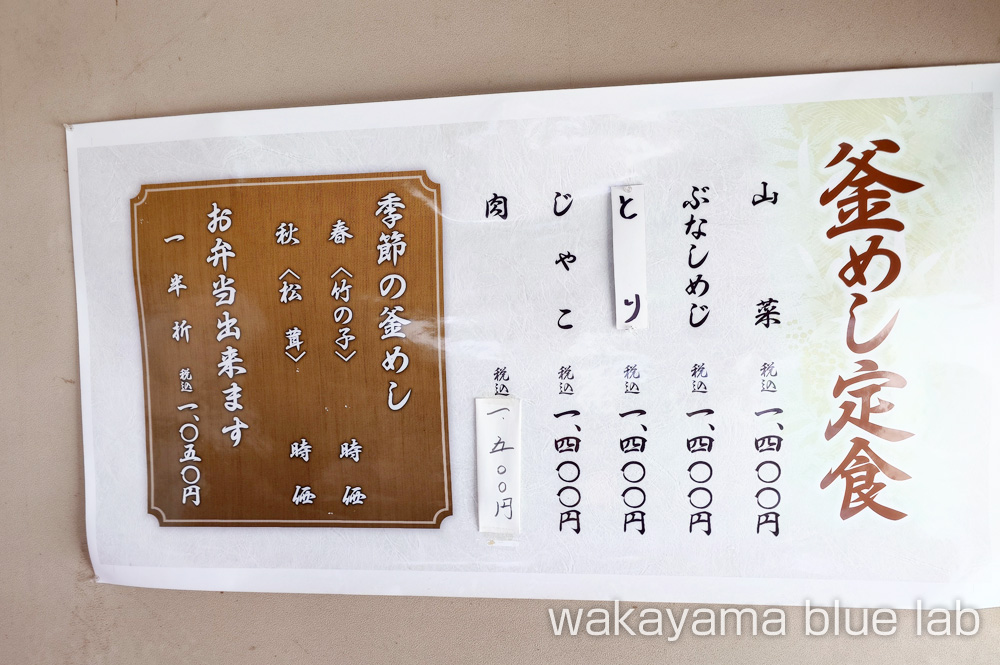 釜めし定食
山菜 税込 一、四〇〇円
ぶなしめじ 税込 一、四〇〇円
とり 税込 一、四〇〇円
じゃこ 税込 一、四〇〇円
肉 税込 一、五〇〇円
季節の釜めし
春〈竹の子〉 時価
秋〈松茸〉 時価
お弁当出来ます
一半折 税込 一、〇五〇円
wakayama blue lab